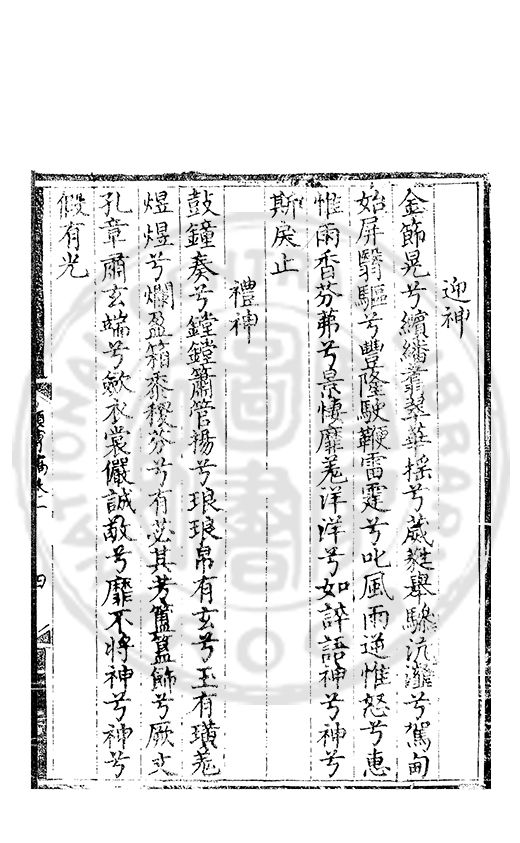 迎神
金篩晃兮繽繙翥翠華揺兮葳蕤舉驂流瀣兮駕甸
始屏翳驅兮豐隆駛鞭雷霆兮叱風雨逆惟怒兮惠
惟雨香芬茀兮景怳靡羗洋洋兮如誶語神兮神兮
斯戾止
禮神
鼓鐘奏兮鏜鏜簫管揚兮琅琅帛有玄兮玉有璜羗
煜煜兮爛盈箱黍稷芬兮有苾其芳簠簋飾兮厥文
孔章肅玄端兮歛衣裳儼誠敬兮靡不將神兮神兮
假有光
卷一
四